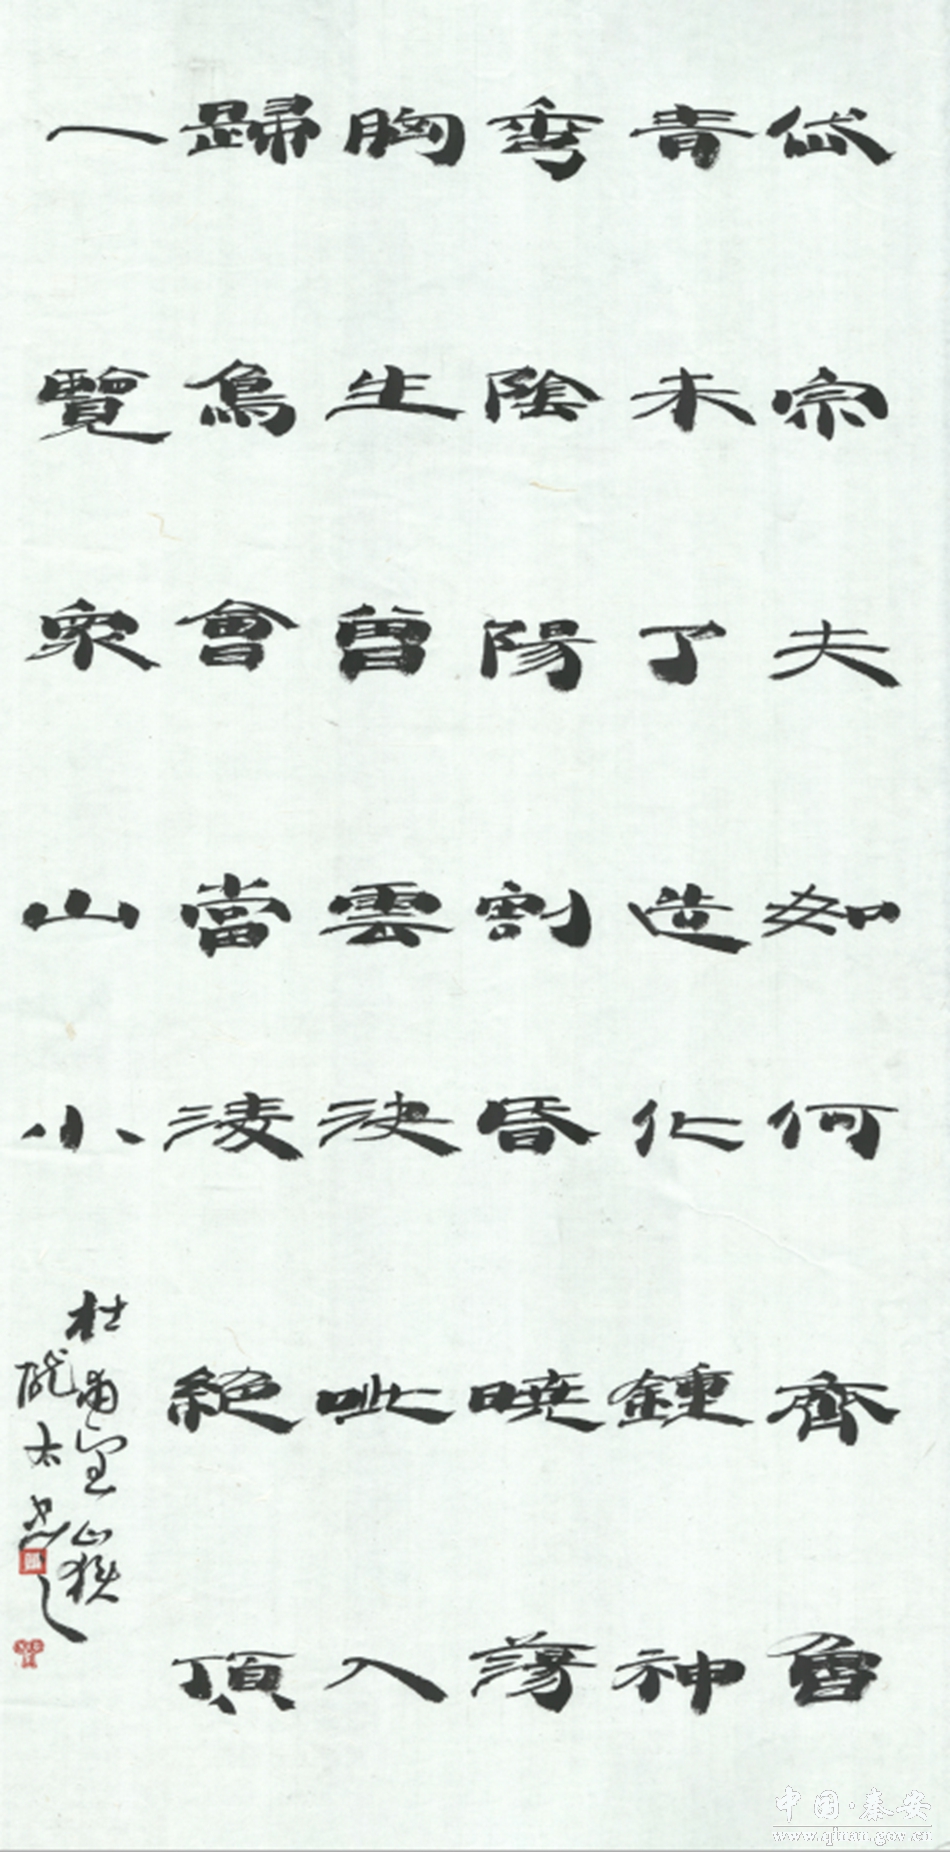 岱宗夫如何齊魯
青未了造化鍾神
秀陰陽割昏曉蕩
胸生曾雲決眦入
歸鳥會當淩絕頂
一覽衆山小
杜甫望嶽
中国·泰安